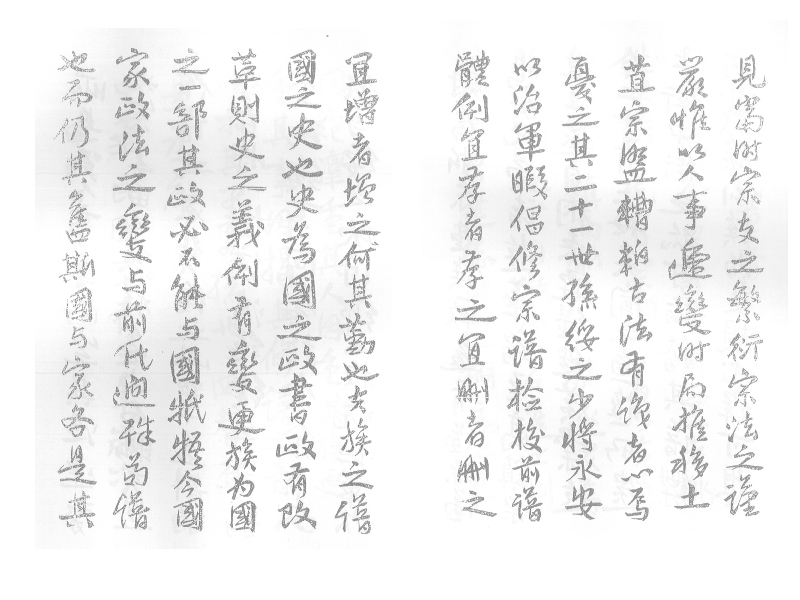 見當時宗支之繁衍宗法之謹
嚴惟以人事遞變時局推移土
苴宗盟糟粕古法有識者心焉
憂之其二十一世孫綏之少將永安
以治軍暇倡修宗譜檢校前譜
體例宜存者存之宜刪者刪之
宜增者增之何其勤也夫族之譜
國之史也史為國之政書政有改
革則史之義例有變更族为國
之一部其政必不能与國牴牾今國
家政法之變与前代迥殊茍譜
也而仍其舊斯國与家各是其